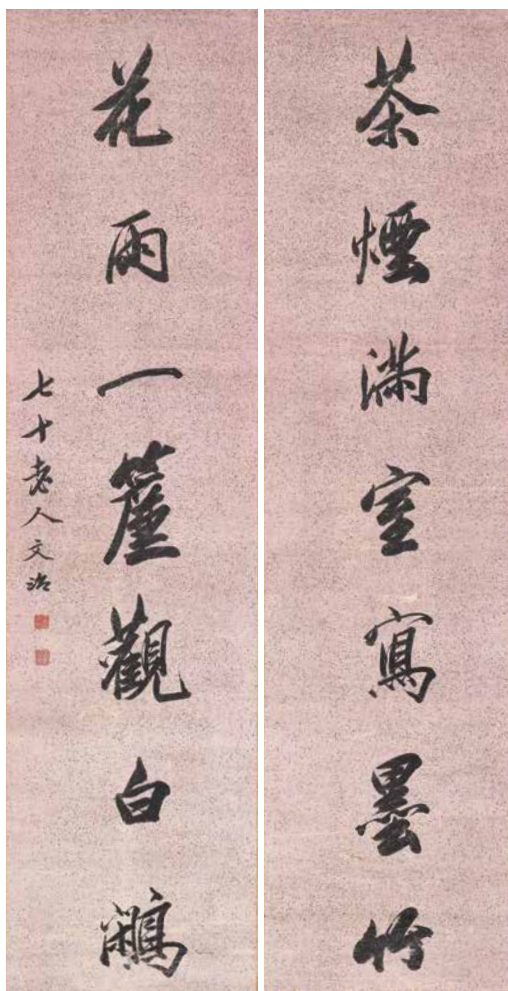 茶煙滿室寫墨竹
花雨一簾觀白鷴
七十老人文治